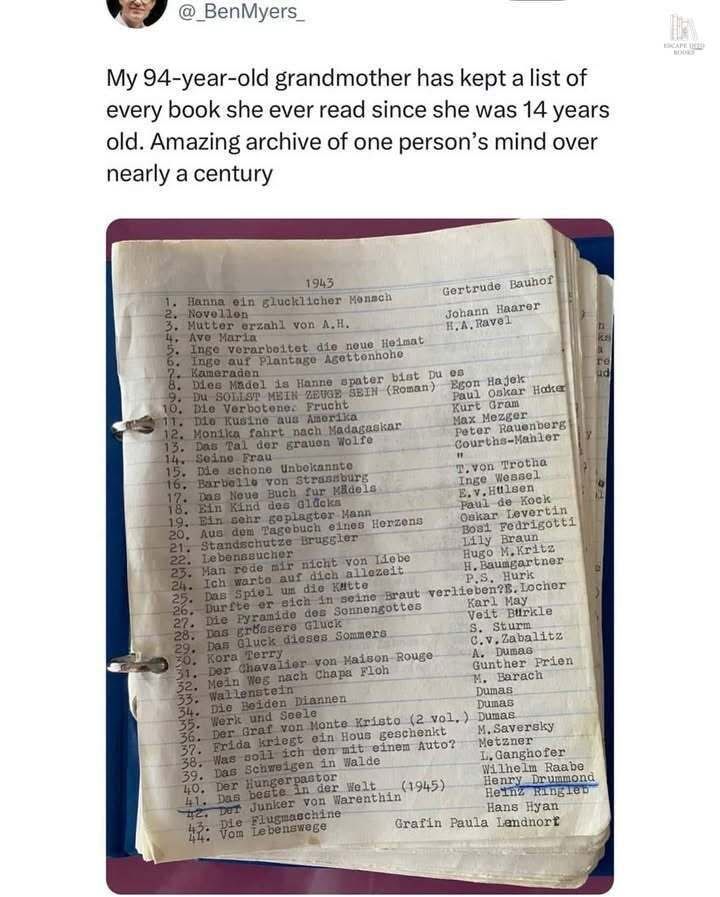 @_BenMyers_
ESCAPE INTO
BOOKS
My 94-year-old grandmother has kept a list of
every book she ever read since she was 14 years
old. Amazing archive of one person's mind over
nearly a century
1943
1. Hanna ein glucklicher Mensch Gertrude Bauhof
2. Novellen
3. Mutter erzahl von A.H. Johann Haarer
4. Ave Maria H.A.Ravel
5. Inge verarbeitet die neue Heimat
6. Inge auf Plantage Agettenhohe
7. Kameraden
8. Dies Mädel is Hanne spater bist Du es
9. Du SOLLST MEIN ZEUGE SEIN (Roman) Egon Hajek
10. Die Verbotene Frucht Paul Oskar Hoker
11. Die Kusine aus Amerika Kurt Gram
12. Monika fahrt nach Madagaskar Max Mezger
13. Das Tal der grauen Wolfe Peter Rauenberg
14. Seine Frau Courths-Mahler
15. Die schone Unbekannte "
16. Barbelle von Strassburg T.von Trotha
17. Das Neue Buch fur Mädels Inge Wessel
18. Ein Kind des Glücks E.v.Hülsen
19. Ein sehr geplagter Mann Paul de Kock
20. Aus dem Tagebuch eines Herzens Oskar Levertin
21. Standschutze Bruggler Bosi Fedrigotti
22. Lebenssucher Lily Braun
23. Man rede mir nicht von Liebe Hugo M.Kritz
24. Ich warte auf dich allezeit H.Baumgartner
25. Das Spiel um die Kätte P.S. Hurk
26. Durfte er sich in seine Braut verlieben?E.Locher
27. Die Pyramide des Sonnengottes Karl May
28. Das grössere Gluck Veit Bürkle
29. Das Gluck dieses Sommers S. Sturm
30. Kora Terry C.v.Zabalitz
31. Der Chavalier von Maison Rouge A. Dumas
32. Mein Weg nach Chapa Floh Gunther Prien
33. Wallenstein M. Barach
34. Die Beiden Diannen Dumas
35. Werk und Seele Dumas
36. Der Graf von Monte Kristo (2 vol.) Dumas
37. Frida kriegt ein Hous geschenkt M.Saversky
38. Was soll ich den mit einem Auto? Metzner
39. Das Schweigen in Walde L.Ganghofer
40. Der Hungerpastor Wilhelm Raabe
41. Das beste in der Welt (1945) Henry Drummond
42. Der Junker von Warenthin Heinz Ringleb
43. Die Flugmaschine Hans Hyan
44. Vom Lebenswege Grafin Paula Lendnorf